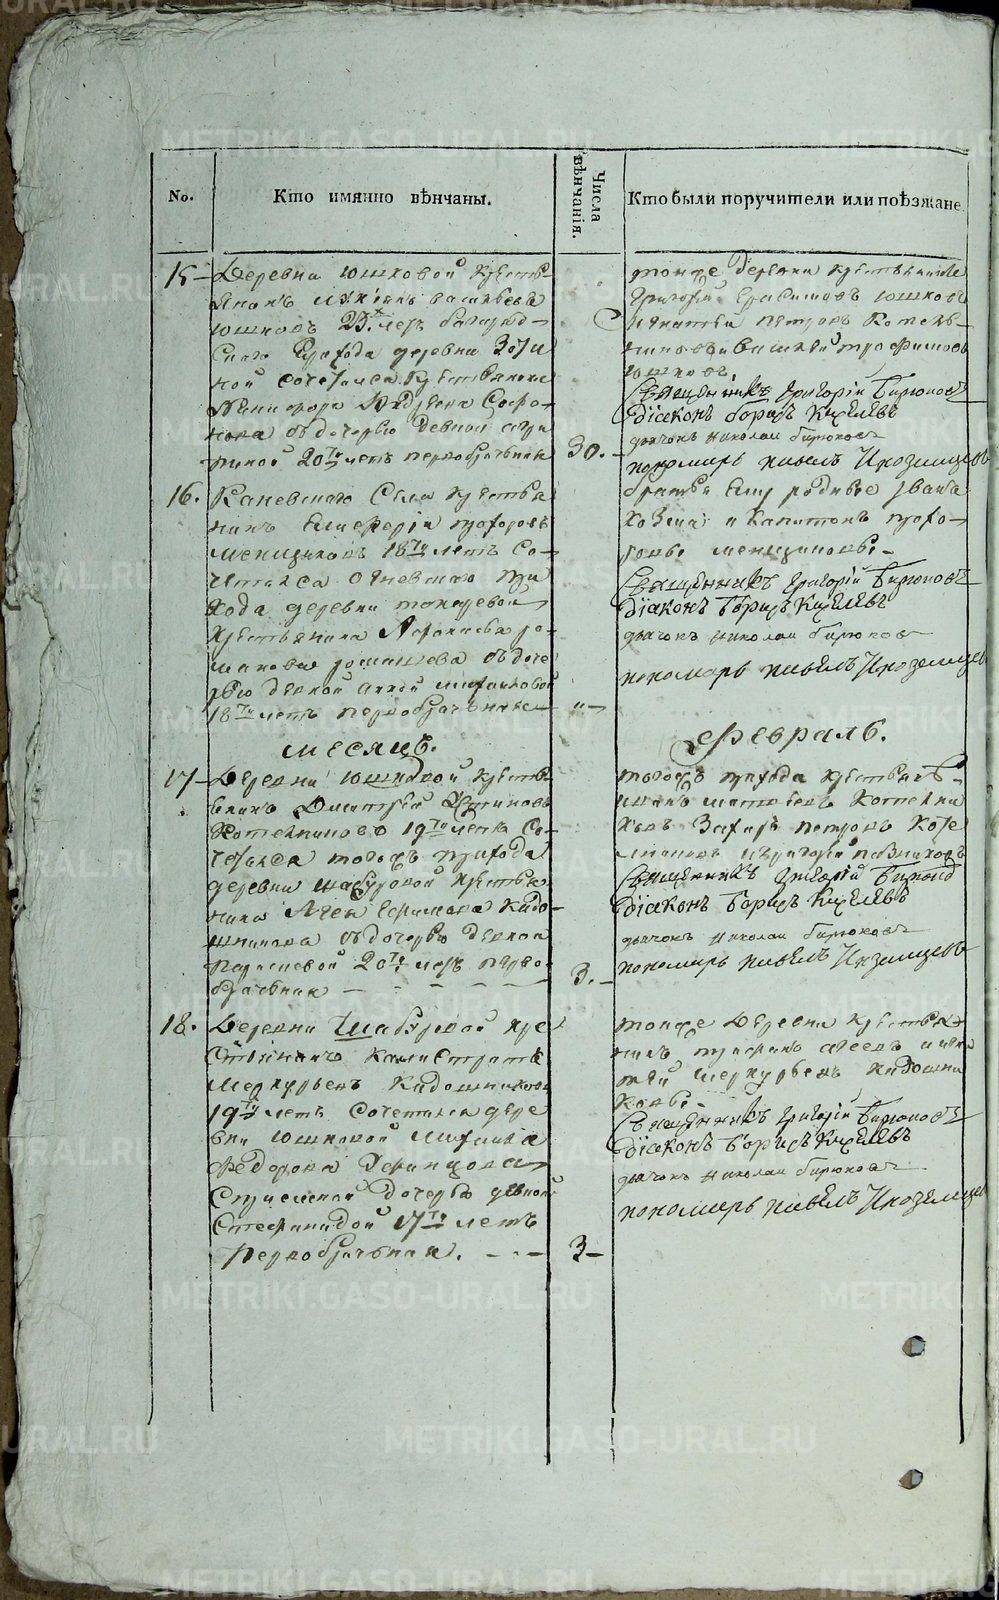 METRIKI.GASO-URAL.RU
No.
Кто имянно вѣнчаны.
Числа вѣнчанія.
Кто были поручители или поѣзжане.
15 Деревни Юшковой крестья
янинъ Василье
Юшковъ 23х лѣтъ
прихода деревни
ной сочетался крестьянина
дочерью девкой
20ти летъ первобрачныи
30.
тояже деревни крестьянинъ
Григорей Герасимовъ Юшковъ
Петровъ Котель
никовъ и Василей Трофимовъ
Юшковъ.
Священникъ Григорій Бирюковъ
Діаконъ Борисъ Киселевъ
дьячокъ Николай Бирюковъ
пономарь Павелъ Иноземцевъ
16. Каневскаго Села крестья
нинъ Прохоровъ
Менщиковъ 18ти летъ Со
четался Огневскаго при
хода деревни Токаревой
крестьянина Афанасья Ро
манова Ромашева съ доче
рью девкой Анной
18ти летъ первобрачныи
братья Ему родные Иванъ
Козма и Капитонъ Прохо
ровы Менщиковы
Священникъ Григорій Бирюковъ
Діаконъ Борисъ Киселевъ
дьячокъ Николай Бирюковъ
пономарь Павелъ Иноземцевъ
месяцъ.
Февраль.
17 Деревни Юшковой кресть
янинъ Дмитрей
Котельниковъ 19ти летъ Со
четался тогожъ прихода
деревни Шабуровой крестья
нина Агея Ефимова Кадо
шникова съ дочерью девкой
20ти летъ перво
брачныи
3.
тогожъ прихода крестьяне
Матвеевъ Котельни
ковъ Захаръ Петровъ Коте
льниковъ и Григорей
Священникъ Григорій Бирюков
Діаконъ Борисъ Киселевъ
дьячокъ Николай Бирюковъ
пономарь Павелъ Иноземцевъ
18. Деревни Шабуровой кре
стьянинъ Калистратъ
Меркурьевъ Кадошниковъ
19ти летъ сочетался дере
вни Юшковой Михаила
Федорова
дочерью девкой
Степанидой 17ти летъ
первобрачныи.
3
тояже Деревни крестья
нинъ Агеевъ
Меркурьевъ Кадошни
ковы
Священникъ Григорій Бирюковъ
Діаконъ Борисъ Киселевъ
дьячокъ Николай Бирюковъ
пономарь Павелъ Иноземцев